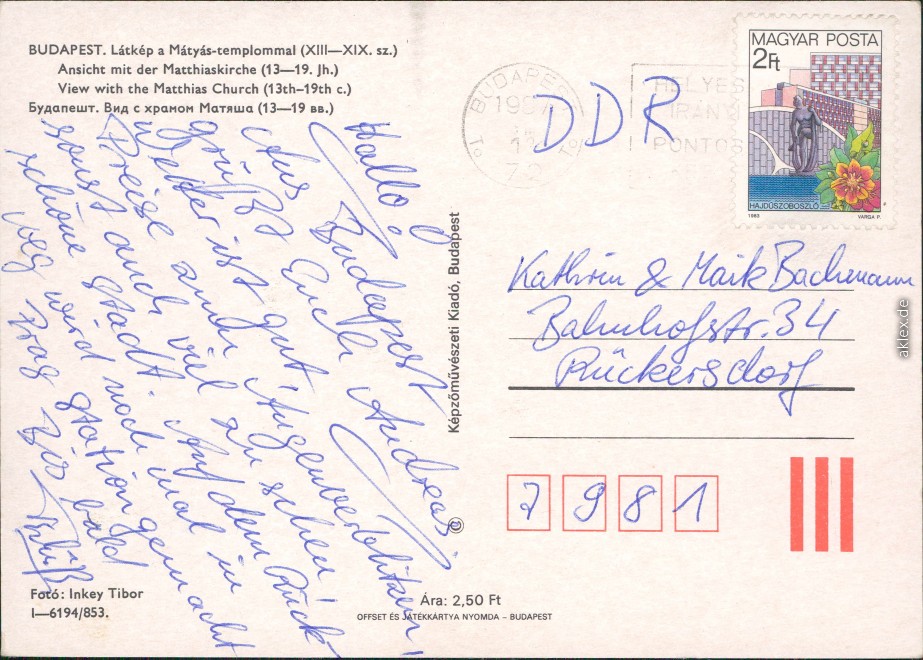 BUDAPEST. Látkép a Mátyás-templommal (XIII—XIX. sz.)
Ansicht mit der Matthiaskirche (13—19. Jh.)
View with the Matthias Church (13th–19th c.)
Будапешт. Вид с храмом Матяша (13—19 вв.)
Hallo!
Aus Budapest
grüßt Euch Andreas
Wetter ist gut
Preise auch viel zu sehen!
sonst auch Auf dem Rück
schöne Stadt. noch mal in
weg wird station gemacht
Prag Bis bald
Tschüß
Fotó: Inkey Tibor
I—6194/853.
Képzőművészeti Kiadó, Budapest
©
Ára: 2,50 Ft
OFFSET ÉS JÁTÉKKÁRTYA NYOMDA – BUDAPEST
BUDAPEST
72
HELYES
IRÁNY
PONTOS
DDR
MAGYAR POSTA
2Ft
HAJDÚSZOBOSZLÓ
1983
VARGA P.
Kathrin & Maik Bachmann
Bahnhofstr. 34
Rückersdorf
7981
aklex.de